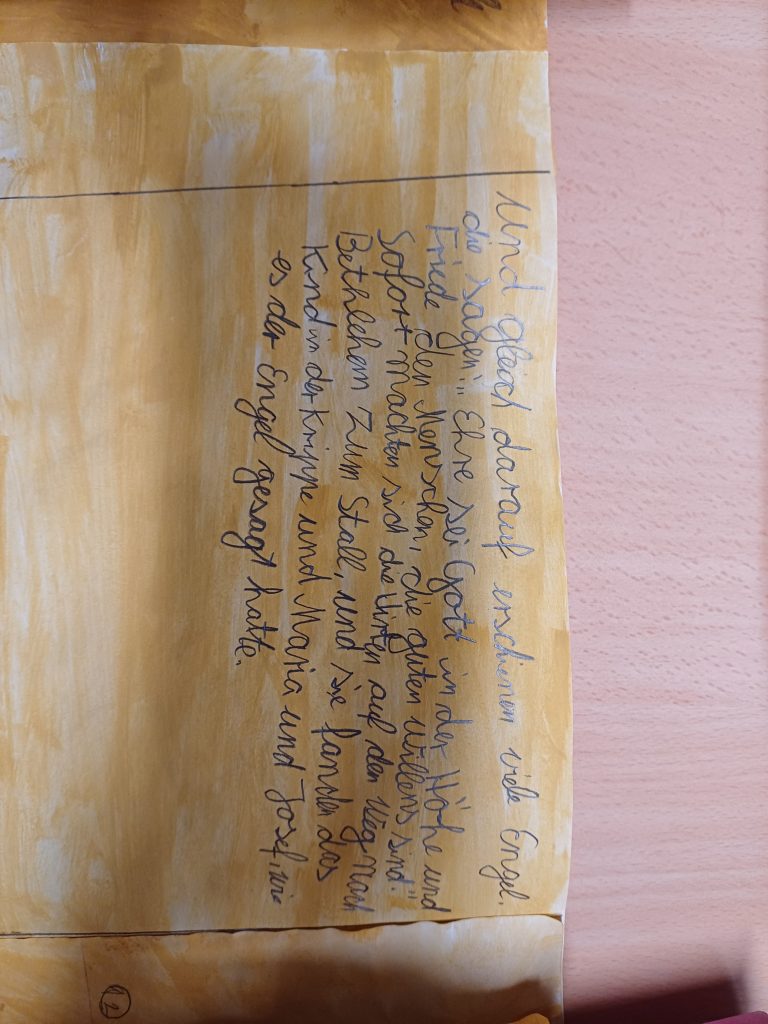 Und gleich darauf erschienen viele Engel,
die sagen: "Ehre sei Gott in der Höhe und
Friede den Menschen, die guten willens sind."
Sofort machten sich die Hirten auf den Weg nach
Bethlehem zum Stall, und sie fanden das
Kind in der Krippe und Maria und Josef, wie
es der Engel gesagt hatte.
12